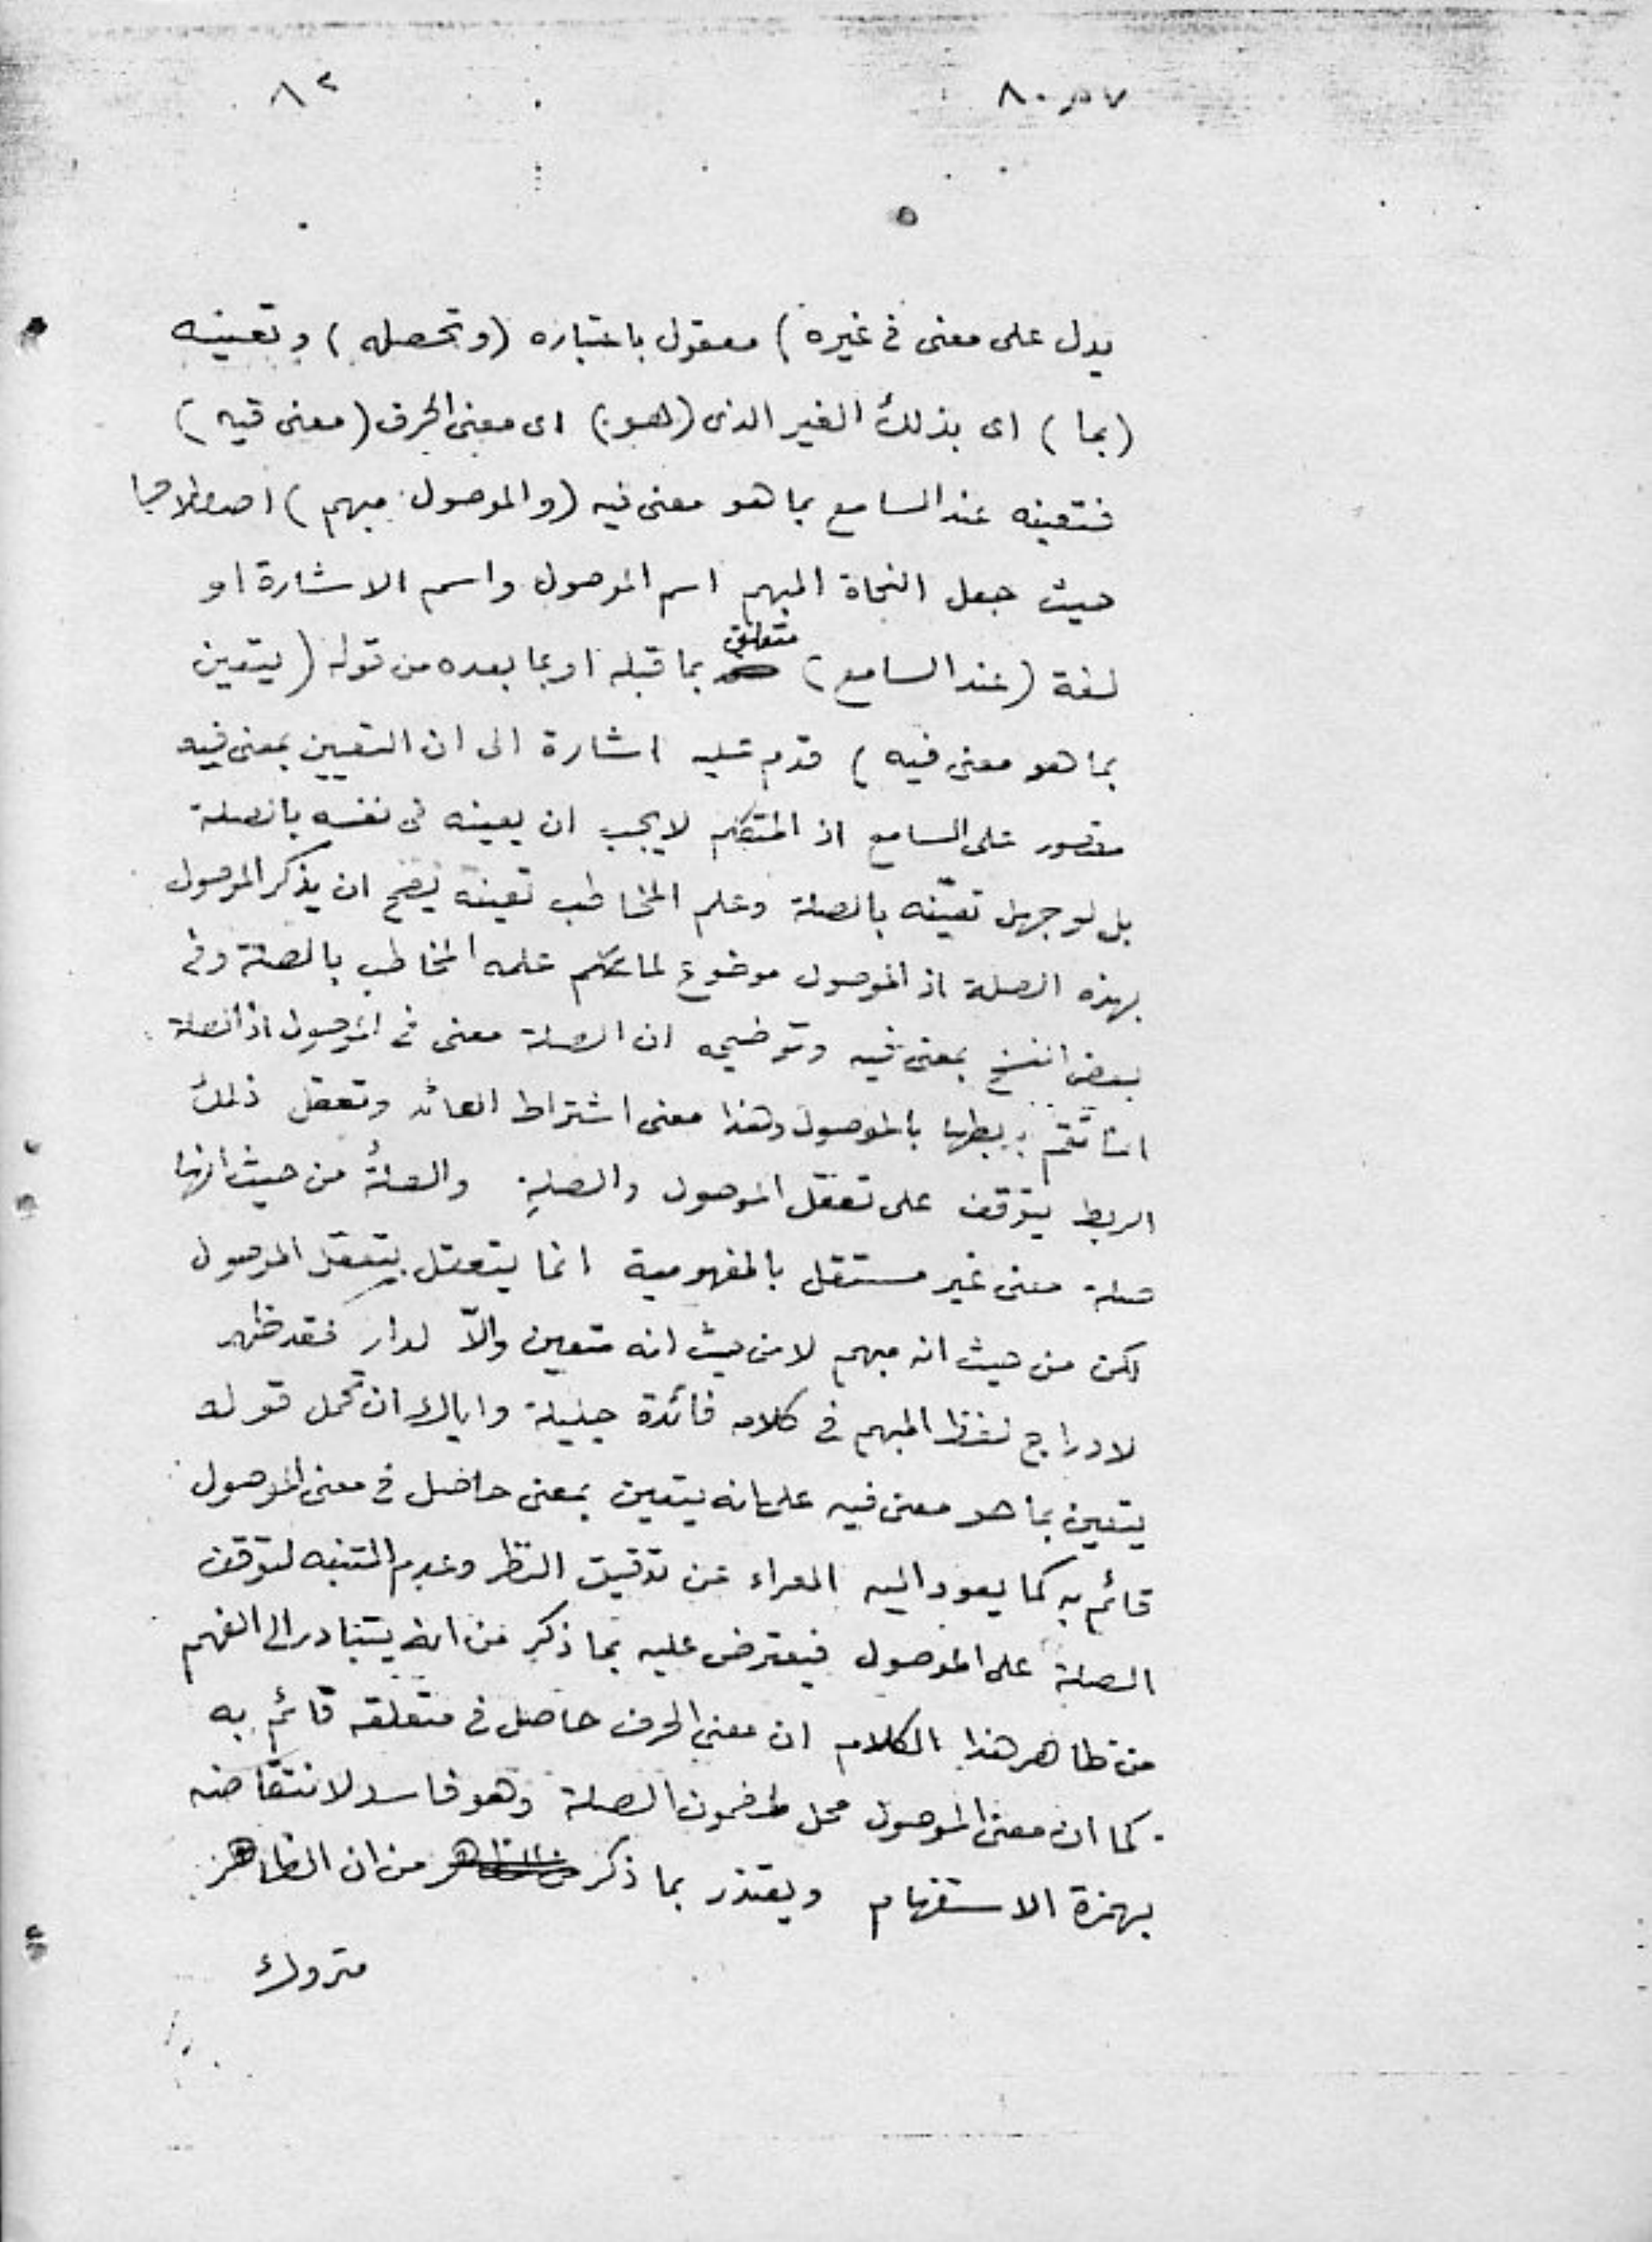 ٨٢
يدل على معنى فى غيره ) معقول باعتباره (وتحصله ) وتعينه
(بما ) اى بذلك الغير الذى (هو) اى معنى الحرف (معنى فيه )
فتعينه عند السامع بما هو معنى فيه (والموصول مبهم ) اصطلاحا
حيث جعل النحاة المبهم اسم الموصول واسم الاشارة او
لغة (عند السامع ) متعلق بما قبله او بما بعده من قوله ( يتعين
بما هو معنى فيه ) قدم عليه اشارة الى ان التعيين بمعنى فيه
مقصور على السامع اذ المتكلم لا يجب ان يعينه فى نفسه بالصلة
بل لو جهل تعينه بالصلة وعلم المخاطب تعينه يصح ان يذكر الموصول
بهذه الصلة اذ الموصول موضوع لما علمه المخاطب بالصلة وفى
بعض النسخ بمعنى فيه وتوضيحه ان الصلة معنى فى الموصول اذ الصلة
انما تتم بربطها بالموصول وهذا معنى اشتراط العائد وتعقل ذلك
الربط يتوقف على تعقل الموصول والصلةِ والصلةُ من حيث انها
صلة معنى غير مستقل بالمفهومية انما يتعقل بتعقل الموصول
لكن من حيث انه مبهم لا من حيث انه متعين والّا لدار فقد ظهر
لادراج لفظ المبهم فى كلامه فائدة جليلة واياك ان تحمل قوله
يتعين بما هو معنى فيه على انه يتعين بمعنى حاصل فى معنى الموصول
قائم به كما يعود اليه المعراء عن تدقيق النظر وعدم التنبه لتوقف
الصلة على الموصول فيعترض عليه بما ذكر من انه يتبادر الى الفهم
من ظاهر هذا الكلام ان معنى الحرف حاصل فى متعلقه قائم به
كما ان معنى الموصول محل لمضمون الصلة وهو فاسد لانتقاضه
بهمزة الاستفهام ويعتذر بما ذكر من ان الظاهر
متروك